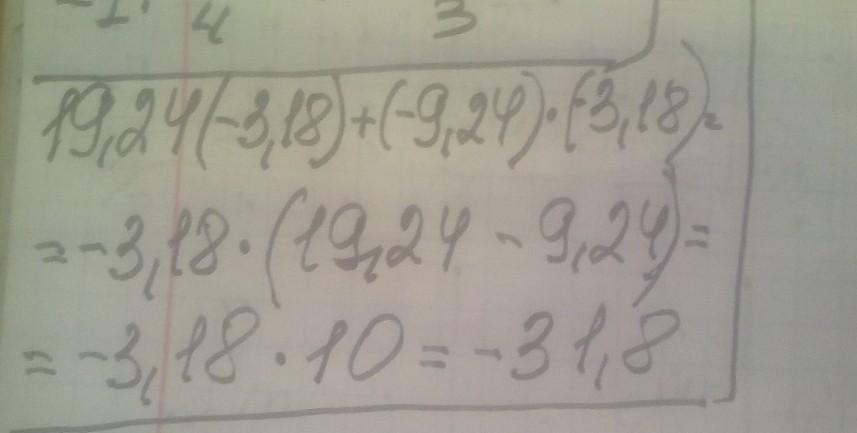 4 3
19,24(-3,18)+(-9,24)·(-3,18)=
=-3,18·(19,24-9,24)=
=-3,18·10=-31,8